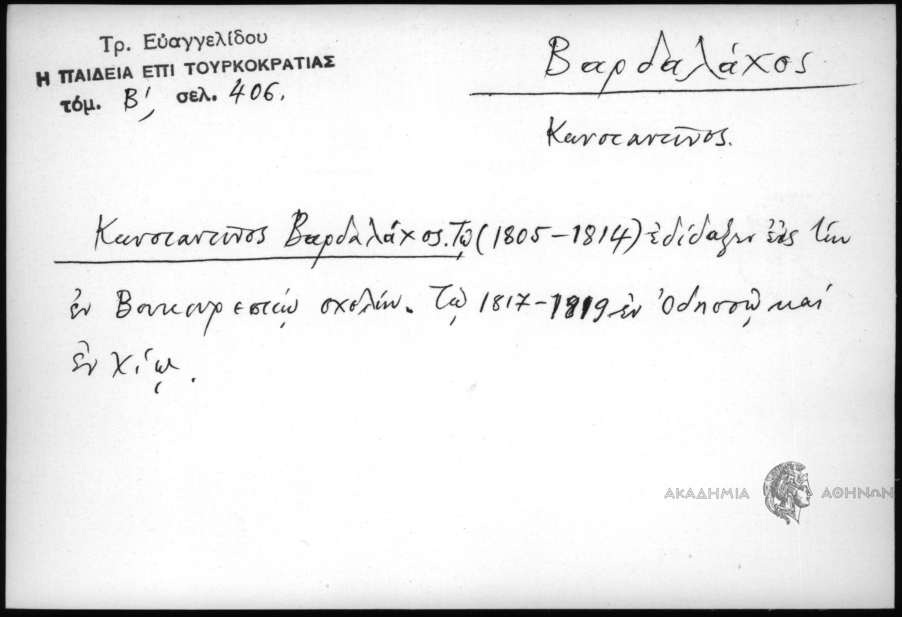 Τρ. Εὐαγγελίδου
Η ΠΑΙΔΕΙΑ ΕΠΙ ΤΟΥΡΚΟΚΡΑΤΙΑΣ
τόμ. Β', σελ. 406.
Βαρδαλάχος
Κωνσταντῖνος.
Κωνσταντῖνος Βαρδαλάχος. Τῷ (1805-1814) ἐδίδαξεν εἰς τὴν
ἐν Βουκουρεστίῳ σχολήν. Τῷ 1817-1819 ἐν Ὀδησσῷ καί
ἐν Χίῳ.
ΑΚΑΔΗΜΙΑ ΑΘΗΝΩΝ